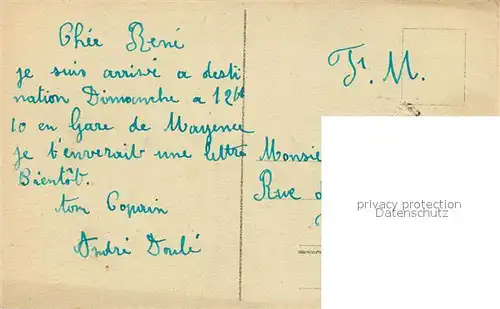 Chée René
je suis arrivé a desti
nation Dimanche a 12h
10 en Gare de Mayence
je t'enverait une lettre
Bientôt.
ton Copain
André Doulé
F. M.
Monsie
Rue d
privacy protection
Datenschutz